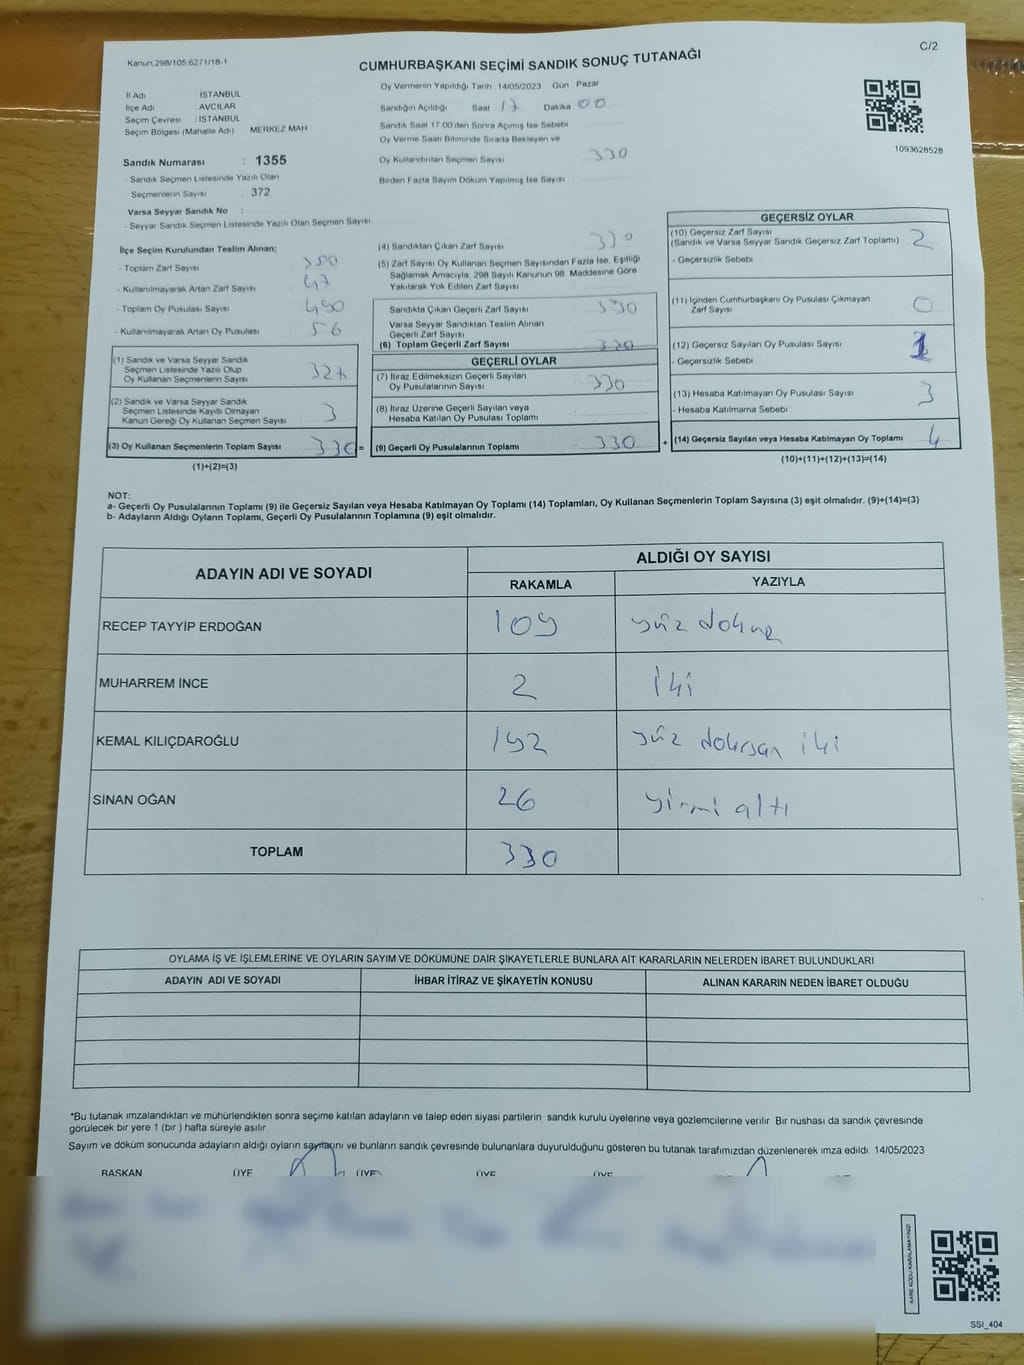 C/2
Kanun.298/105.6271/18-1
CUMHURBAŞKANI SEÇİMİ SANDIK SONUÇ TUTANAĞI
İl Adı İSTANBUL
İlçe Adı AVCILAR
Seçim Çevresi : İSTANBUL
Seçim Bölgesi (Mahalle Adı) MERKEZ MAH
Sandık Numarası : 1355
- Sandık Seçmen Listesinde Yazılı Olan
Seçmenlerin Sayısı : 372
Varsa Seyyar Sandık No :
- Seyyar Sandık Seçmen Listesinde Yazılı Olan Seçmen Sayısı
Oy Vermenin Yapıldığı Tarih 14/05/2023 Gün Pazar
Sandığın Açıldığı Saat 17 Dakika 00
Sandık Saat 17.00'den Sonra Açımış İse Sebebi
Oy Verme Saati Bitiminde Sırada Bekleyen ve
Oy Kullandırılan Seçmen Sayısı 330
Birden Fazla Sayım Döküm Yapılmış İse Sayısı
1093628528
İlçe Seçim Kurulundan Teslim Alınan;
- Toplam Zarf Sayısı
- Kullanılmayarak Artan Zarf Sayısı 47
- Toplam Oy Pusulası Sayısı
- Kullanılmayarak Artan Oy Pusulası 56
(1) Sandık ve Varsa Seyyar Sandık
Seçmen Listesinde Yazılı Olup
Oy Kullanan Seçmenlerin Sayısı
(2) Sandık ve Varsa Seyyar Sandık
Seçmen Listesinde Kayıtlı Olmayan
Kanun Gereği Oy Kullanan Seçmen Sayısı 3
(3) Oy Kullanan Seçmenlerin Toplam Sayısı 330 =
(1)+(2)=(3)
(4) Sandıktan Çıkan Zarf Sayısı 330
(5) Zarf Sayısı Oy Kullanan Seçmen Sayısından Fazla İse, Eşitliği
Sağlamak Amacıyla, 298 Sayılı Kanunun 98. Maddesine Göre
Yakılarak Yok Edilen Zarf Sayısı
Sandıkta Çıkan Geçerli Zarf Sayısı 330
Varsa Seyyar Sandıktan Teslim Alınan
Geçerli Zarf Sayısı
(6) Toplam Geçerli Zarf Sayısı 330
GEÇERLİ OYLAR
(7) İtiraz Edilmeksizin Geçerli Sayılan
Oy Pusulalarının Sayısı 330
(8) İtiraz Üzerine Geçerli Sayılan veya
Hesaba Katılan Oy Pusulası Toplamı
(9) Geçerli Oy Pusulalarının Toplamı 330 +
GEÇERSİZ OYLAR
(10) Geçersiz Zarf Sayısı
(Sandık ve Varsa Seyyar Sandık Geçersiz Zarf Toplamı) 2
- Geçersizlik Sebebi
(11) İçinden Cumhurbaşkanı Oy Pusulası Çıkmayan
Zarf Sayısı 0
(12) Geçersiz Sayılan Oy Pusulası Sayısı 1
- Geçersizlik Sebebi
(13) Hesaba Katılmayan Oy Pusulası Sayısı 3
- Hesaba Katılmama Sebebi
(14) Geçersiz Sayılan veya Hesaba Katılmayan Oy Toplamı 4
(10)+(11)+(12)+(13)=(14)
NOT:
a- Geçerli Oy Pusulalarının Toplamı (9) ile Geçersiz Sayılan veya Hesaba Katılmayan Oy Toplamı (14) Toplamları, Oy Kullanan Seçmenlerin Toplam Sayısına (3) eşit olmalıdır. (9)+(14)=(3)
b- Adayların Aldığı Oyların Toplamı, Geçerli Oy Pusulalarının Toplamına (9) eşit olmalıdır.
ADAYIN ADI VE SOYADI ALDIĞI OY SAYISI
RAKAMLA YAZIYLA
RECEP TAYYİP ERDOĞAN 109 yüz dokuz
MUHARREM İNCE 2 iki
KEMAL KILIÇDAROĞLU 192 yüz doksan iki
SİNAN OĞAN 26 yirmi altı
TOPLAM 330
OYLAMA İŞ VE İŞLEMLERİNE VE OYLARIN SAYIM VE DÖKÜMÜNE DAİR ŞİKAYETLERLE BUNLARA AİT KARARLARIN NELERDEN İBARET BULUNDUKLARI
ADAYIN ADI VE SOYADI İHBAR İTİRAZ VE ŞİKAYETİN KONUSU ALINAN KARARIN NEDEN İBARET OLDUĞU
*Bu tutanak imzalandıktan ve mühürlendikten sonra seçime katılan adayların ve talep eden siyasi partilerin sandık kurulu üyelerine veya gözlemcilerine verilir. Bir nüshası da sandık çevresinde
görülecek bir yere 1 (bir) hafta süreyle asılır.
Sayım ve döküm sonucunda adayların aldığı oyların sayılarını ve bunların sandık çevresinde bulunanlara duyurulduğunu gösteren bu tutanak tarafımızdan düzenlenerek imza edildi. 14/05/2023
BAŞKAN ÜYE ÜYE ÜYE ÜYE
KARE KODU KARALAMAYINIZ!
SSI_404